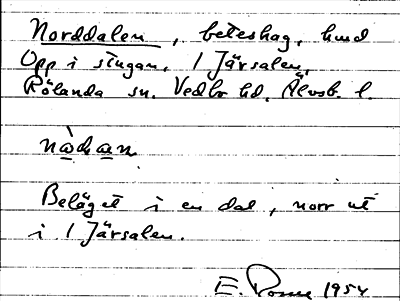 Norddalen, beteshag, hmd
Opp i stugan, 1 Järsalen,
Rölanda sn. Vedbo hd. Älvsb. l.
nò̱ḏa̱n
Beläget i en dal, norr ut
i 1 Järsalen.
E. 1954